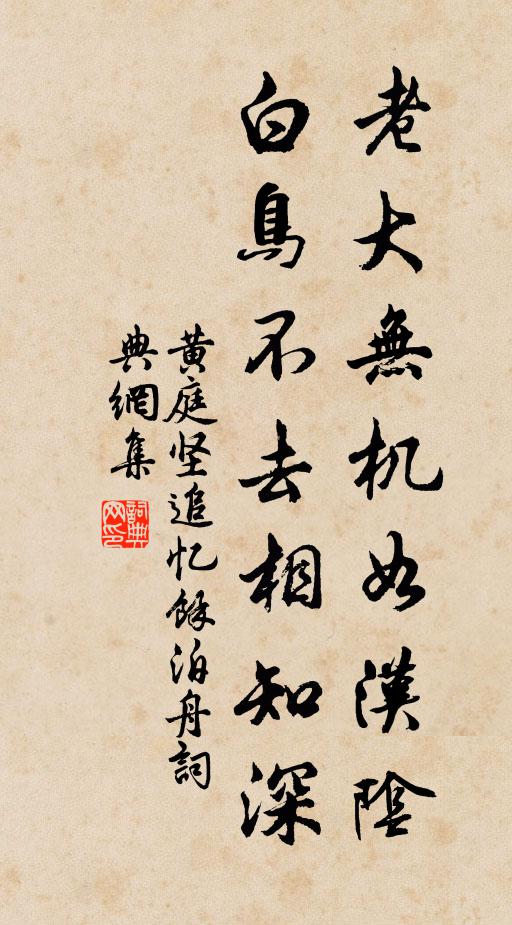 老大無机如漢陰
白鳥不去相知深
黄庭坚追忆餘泊舟詞
典網集
詞典
网印